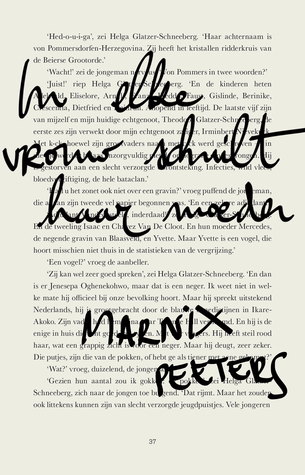 'Hed-o-u-i-ga', zei Helga Glatzer-Schneeberg. 'Haar achternaam is
von Pommersdorfen-Herzegovina. Zij heeft het kristallen ridderkruis van
de Beierse Grootorde.'
'Wacht!' zei de jongeman
von Pommers in twee woorden?'
In elke
'Juist!' riep Helga
Schneeberg. 'En de kinderen heten
Eliselore,
Gislinde, Berinike,
Dietfried en
leeftijd. De laatste vijf zijn
van mijzelf en mijn huidige echtgenoot, Theodor Glatzer-Schneeberg, de
eerste zes zijn verwekt door mijn echtgenoot
vrouw schuilt
van slecht verzorgde
Infecties,
hele bataclan.'
u het zonet ook niet over een gravin?' vroeg puffend de jongeman,
die
zijn tweede vel
begonnen was.
haar moeder
En de tweeling Isaac en
Van De Cloot. En hun moeder Mercedes,
de negende gravin van Blaasveld, en Yvette. Maar Yvette is een vogel, die
hoort misschien niet thuis in de statistieken van de vergrijzing.'
'Een vogel?' vroeg de aanbeller.
'Zij kan wel zeer goed spreken', zei Helga Glatzer-Schneeberg. 'En dan
is er Jenesepa Oghenekohwo, maar dat is een neger. Ik weet niet in wel-
ke mate hij officieel bij onze bevolking hoort. Maar hij spreekt uitstekend
Nederlands, hij is
grootgebracht door de
in Ikare-
Akoko. Zijn
En hij is de
enige in huis die
heeft veel rood
haar, wat een
zicht is voor een neger. Maar hij deugt, zeer zeker.
Die putjes, zijn die van de pokken, of hebt ge als tiener met
MARNIX
'Wat?' vroeg, duizelend, de
PEETERS
'Gezien hun aantal zou ik
Helga Glatzer-
Schneeberg, zich naar de jongen toe
'Dat rijmt. Maar het zouden
ook littekens kunnen zijn van slecht verzorgde jeugdpuistjes. Vele jongeren
37